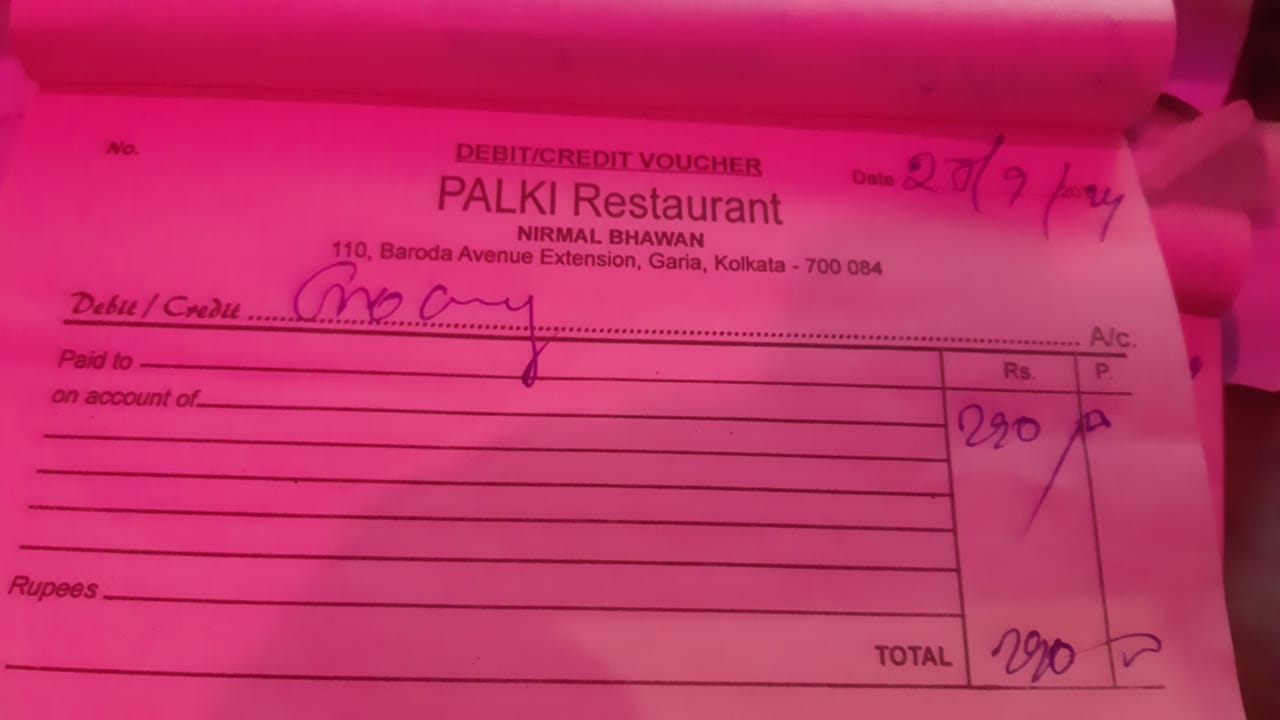 No.
DEBIT/CREDIT VOUCHER
Date /9/2024
PALKI Restaurant
NIRMAL BHAWAN
110, Baroda Avenue Extension, Garia, Kolkata - 700 084
Debit / Credit A/c.
Paid to Rs. P.
on account of
290
Rupees
TOTAL 290